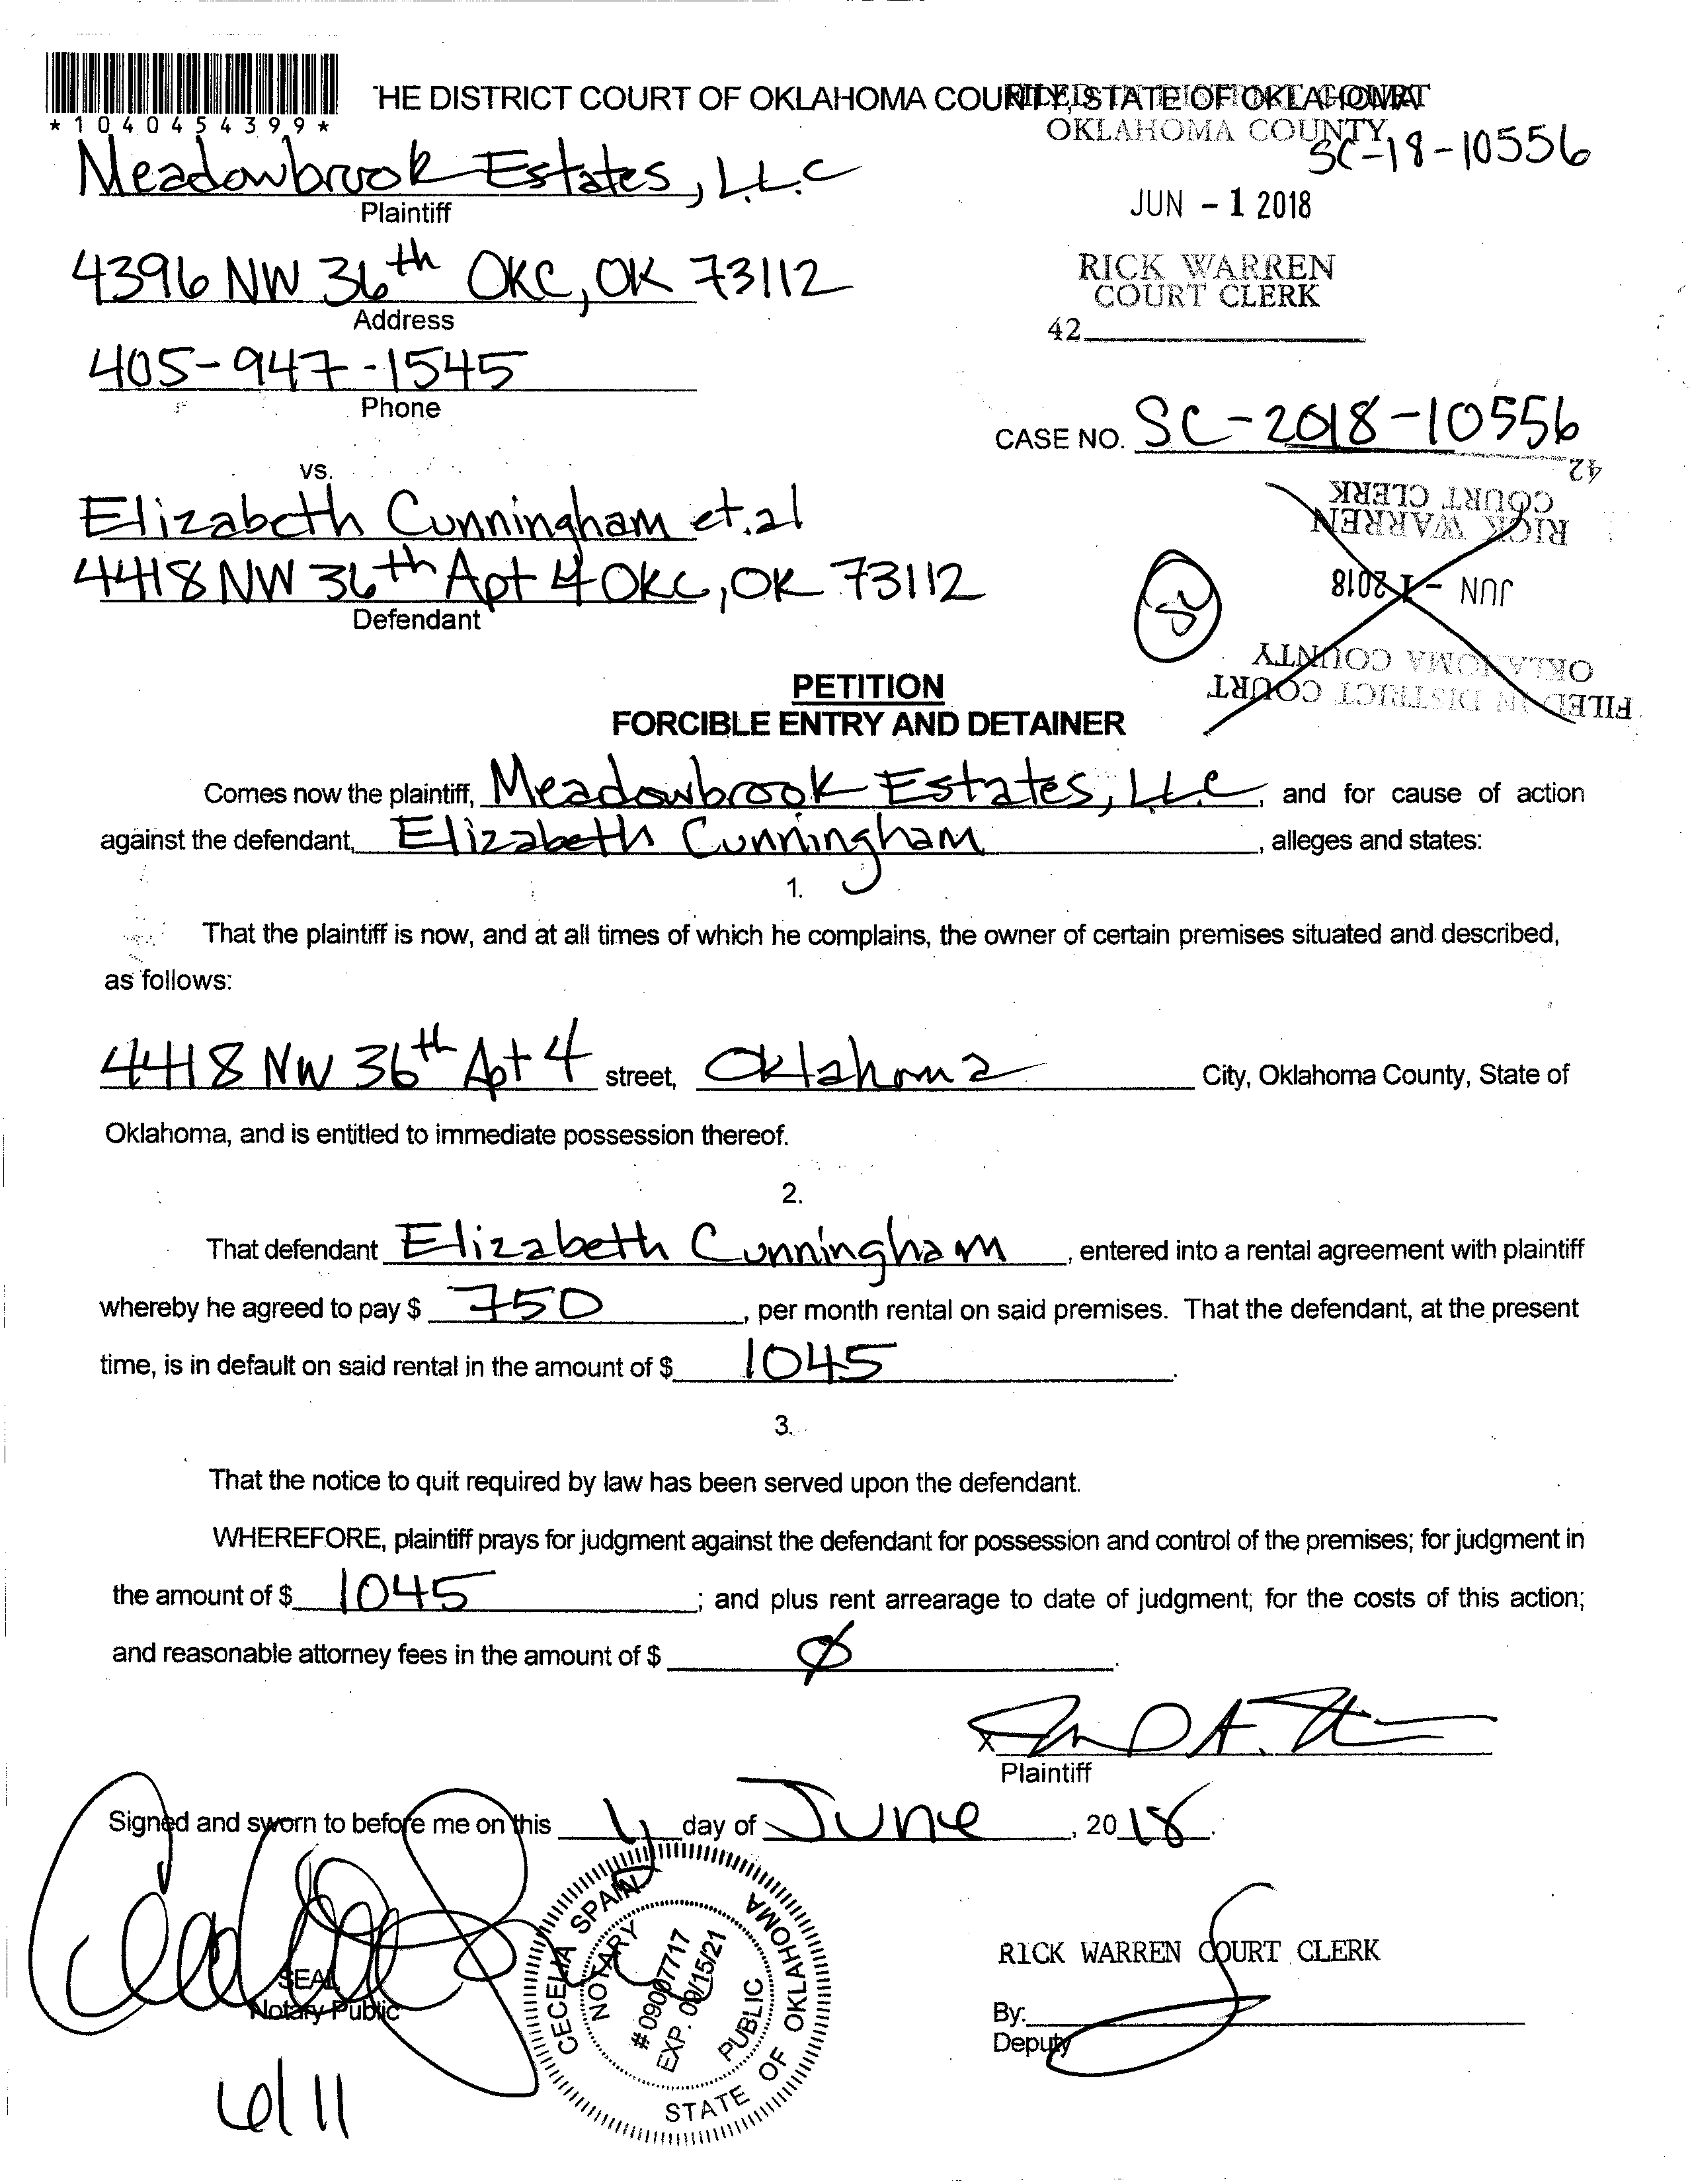 *1040454399*
HE DISTRICT COURT OF OKLAHOMA COUNTY, STATE OF OKLAHOMA
FILED IN DISTRICT COURT
OKLAHOMA COUNTY
SC-18-10556
Meadowbrook Estates, L.L.C
Plaintiff
JUN - 1 2018
4396 NW 36th OKC, OK 73112
Address
RICK WARREN
COURT CLERK
42
405-947-1545
Phone
CASE NO. SC-2018-10556
vs.
Elizabeth Cunningham et.al
4418 NW 36th Apt 4 OKC, OK 73112
Defendant
FILED IN DISTRICT COURT
OKLAHOMA COUNTY
JUN - 1 2018
RICK WARREN
COURT CLERK
42
PETITION
FORCIBLE ENTRY AND DETAINER
Comes now the plaintiff, Meadowbrook Estates, LLC, and for cause of action
against the defendant, Elizabeth Cunningham, alleges and states:
1.
That the plaintiff is now, and at all times of which he complains, the owner of certain premises situated and described,
as follows:
4418 NW 36th Apt 4 street, Oklahoma City, Oklahoma County, State of
Oklahoma, and is entitled to immediate possession thereof.
2.
That defendant Elizabeth Cunningham, entered into a rental agreement with plaintiff
whereby he agreed to pay $ 750, per month rental on said premises. That the defendant, at the present
time, is in default on said rental in the amount of $ 1045.
3.
That the notice to quit required by law has been served upon the defendant.
WHEREFORE, plaintiff prays for judgment against the defendant for possession and control of the premises; for judgment in
the amount of $ 1045; and plus rent arrearage to date of judgment; for the costs of this action;
and reasonable attorney fees in the amount of $ Ø.
x
Plaintiff
Signed and sworn to before me on this 1 day of June, 2018.
CECELIA SPAIN
NOTARY
#09007717
EXP. 09/15/21
PUBLIC
STATE OF OKLAHOMA
SEAL
Notary Public
RICK WARREN COURT CLERK
By:
Deputy
6/11